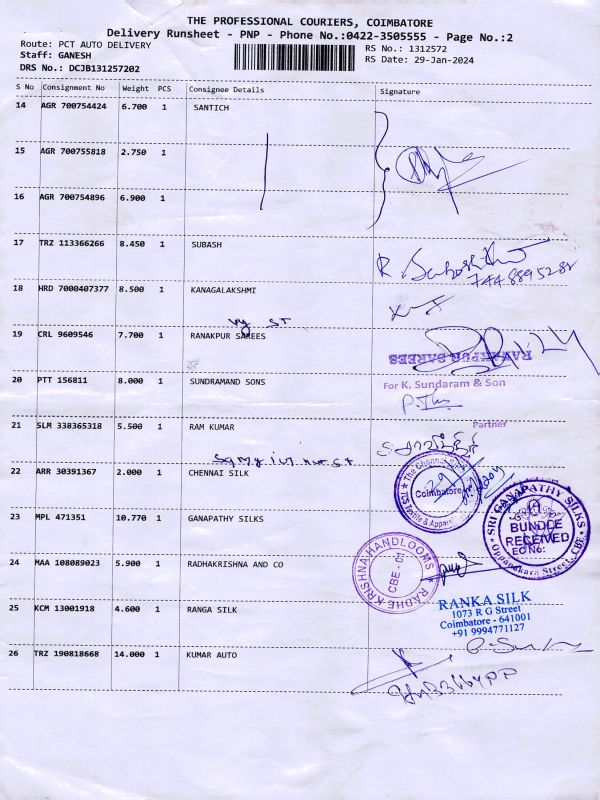 THE PROFESSIONAL COURIERS, COIMBATORE
Delivery Runsheet - PNP - Phone No.:0422-3505555 - Page No.:2
Route: PCT AUTO DELIVERY
RS No.: 1312572
Staff: GANESH
RS Date: 29-Jan-2024
DRS No.: DCJB131257202
S No Consignment No Weight PCS Consignee Details Signature
14 AGR 700754424 6.700 1 SANTICH
15 AGR 700755818 2.750 1
16 AGR 700754896 6.900 1
17 TRZ 113366266 8.450 1 SUBASH
18 HRD 7000407377 8.500 1 KANAGALAKSHMI
19 CRL 9609546 7.700 1 RANAKPUR SAREES
RANAKPUR SAREES
20 PTT 156811 8.000 1 SUNDRAMAND SONS
For K. Sundaram & Son
Partner
21 SLM 338365318 5.500 1 RAM KUMAR
22 ARR 30391367 2.000 1 CHENNAI SILK
The Chennai Silks
Coimbatore
Textile & Apparel
23 MPL 471351 10.770 1 GANAPATHY SILKS
SRI GANAPATHY SILKS
BUNDLE
RECEIVED
Oppanakara Street, CBE.
24 MAA 108089023 5.900 1 RADHAKRISHNA AND CO
RADHE KRISHNA HANDLOOMS
CBE - 01
25 KCM 13001918 4.600 1 RANGA SILK
RANKA SILK
1073 R G Street
Coimbatore - 641001
+91 9994771127
26 TRZ 190818668 14.000 1 KUMAR AUTO